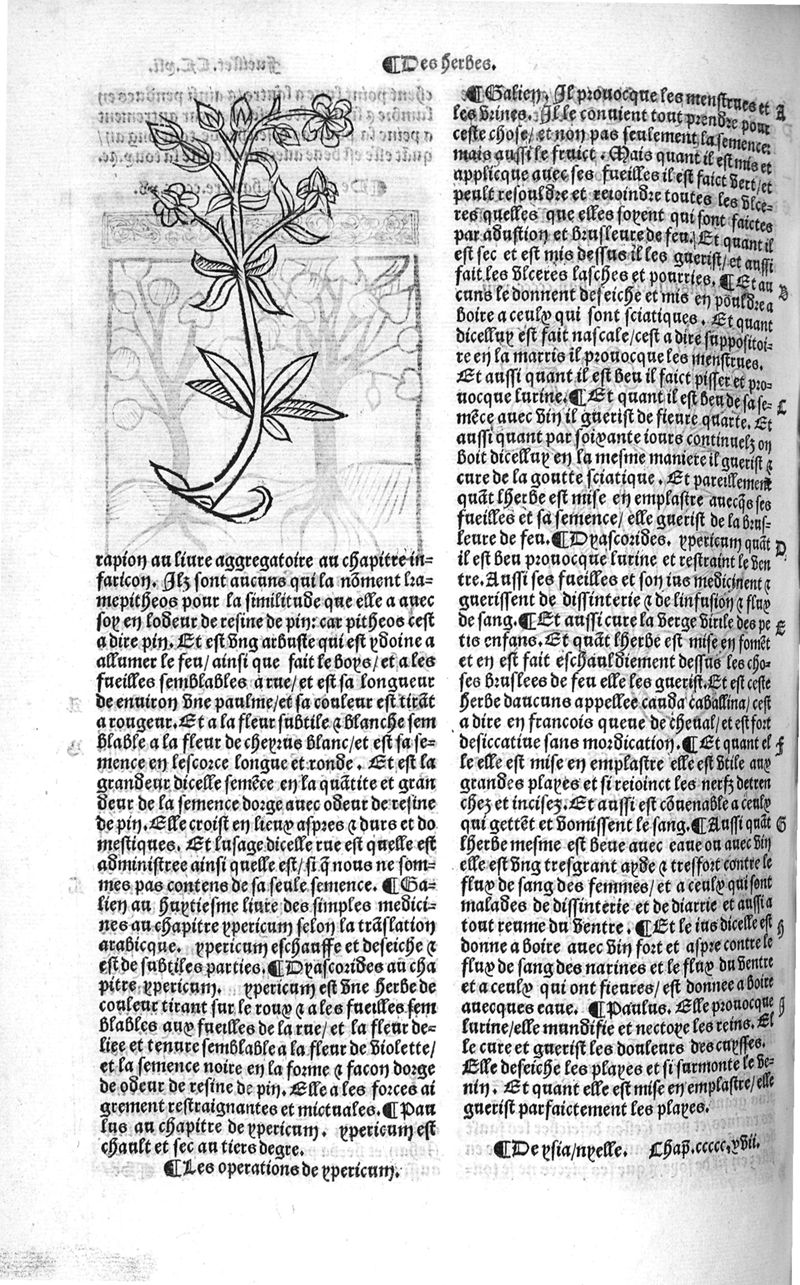 ¶Des herbes.
rapion au liure aggregatoire au chapitre in-
faricon. Ilz sont aucuns qui la nōment lra-
mepitheos pour la similitude que elle a auec
soy en lodeur de resine de pin: car pitheos cest
a dire pin. Et est vng arbuste qui est ydoine a
allumer le feu/ ainsi que fait le boys/ et a les
fueilles semblables a rue/ et est sa longueur
de enuiron vne paulme/ et sa couleur est tirāt
a rougeur. Et a la fleur subtile ⁊ blanche sem
blable a la fleur de cheyrus blanc/ et est sa se-
mence en lescorce longue et ronde. Et est la
grandeur dicelle semēce en la quātite et gran
deur de la semence dorge auec odeur de resine
de pin. Elle croist en lieux aspres ⁊ durs et do
mestiques. Et lusage dicelle rue est quelle est
administree ainsi quelle est/ si q̄ nous ne som-
mes pas contens de sa seule semence. ¶Ga-
lien au huytiesme liure des simples medici-
nes au chapitre ypericum selon la trāslation
arabicque. ypericum eschauffe et deseiche ⁊
est de subtiles parties. ¶Dyascorides au cha
pitre ypericum. ypericum est vne herbe de
couleur tirant sur le roux ⁊ a les fueilles sem
blables aux fueilles de la rue/ et la fleur de-
liee et tenure semblable a la fleur de violette/
et la semence noire en la forme ⁊ facon dorge
de odeur de resine de pin. Elle a les forces ai
grement restraignantes et mictuales. ¶Pau
lus au chapitre de ypericum. ypericum est
chault et sec au tiers degre.
¶Les operations de ypericum.
¶Galien. Il prouocque les menstrues et A
les vrines. Il le conuient tout prendre pour
ceste chose/ et non pas seulement la semence:
mais aussi le fruict. Mais quant il est mis et
applicque auec ses fueilles il est faict vert/ et
peult resouldre et reioindre toutes les vlce-
res quelles que elles soyent qui sont faictes
par adustion et brusleure de feu. Et quant il
est sec et est mis dessus il les guerist/ et aussi
fait les vlceres lasches et pourries. ¶Et au B
cuns le donnent deseiche et mis en pouldre a
boire a ceulx qui sont sciatiques. Et quant
dicelluy est fait nascale/ cest a dire suppositoi-
re en la marris il prouocque les menstrues.
Et aussi quant il est beu il faict pisser et pro-
uocque lurine. ¶Et quant il est beu de sa se- C
mēce auec vin il guerist de fieure quarte. Et
aussi quant par soixante iours continuelz on
boit dicelluy en la mesme maniere il guerist ⁊
cure de la goutte sciatique. Et pareillement
quāt lherbe est mise en emplastre auecq̄s ses
fueilles et sa semence/ elle guerist de la brus-
leure de feu. ¶Dyascorides. ypericum quāt D
il est beu prouocque lurine et restraint le ven
tre. Aussi ses fueilles et son ius medicinent ⁊
guerissent de dissinterie ⁊ de linfusion ⁊ flux
de sang. ¶Et aussi cure la verge virile des pe E
tis enfans. Et quāt lherbe est mise en fomēt
et en est fait eschauldiement dessus les cho-
ses bruslees de feu elle les guerist. Et est ceste
herbe daucuns appellee cauda caballina/ cest
a dire en francois queue de cheual/ et est fort
desiccatiue sans mordication. ¶Et quant el F
le elle est mise en emplastre elle est vtile aux
grandes playes et si reioinct les nerfz detren
chez et incisez. Et aussi est cōuenable a ceulx
qui gettēt et vomissent le sang. ¶Aussi quāt G
lherbe mesme est beue auec eaue ou auec vin
elle est vng tresgrant ayde ⁊ tresfort contre le
flux de sang des femmes/ et a ceulx qui sont
malades de dissinterie et de diarrie et aussi a
tout reume du ventre. ¶Et le ius dicelle est H
donne a boire auec vin fort et aspre contre le
flux de sang des narines et le flux du ventre
et a ceulx qui ont fieures/ et est donnee a boire
auecques eaue. ¶Paulus. Elle prouocque J
lurine/ elle mundifie et nectoye les reins. El
le cure et guerist les douleurs des cuysses.
Elle deseiche les playes et si surmonte le ve-
nin. Et quant elle est mise en emplastre/ elle
guerist parfaictement les playes.
¶De ysia/nyelle. Chap̄. ccccc.xvii.